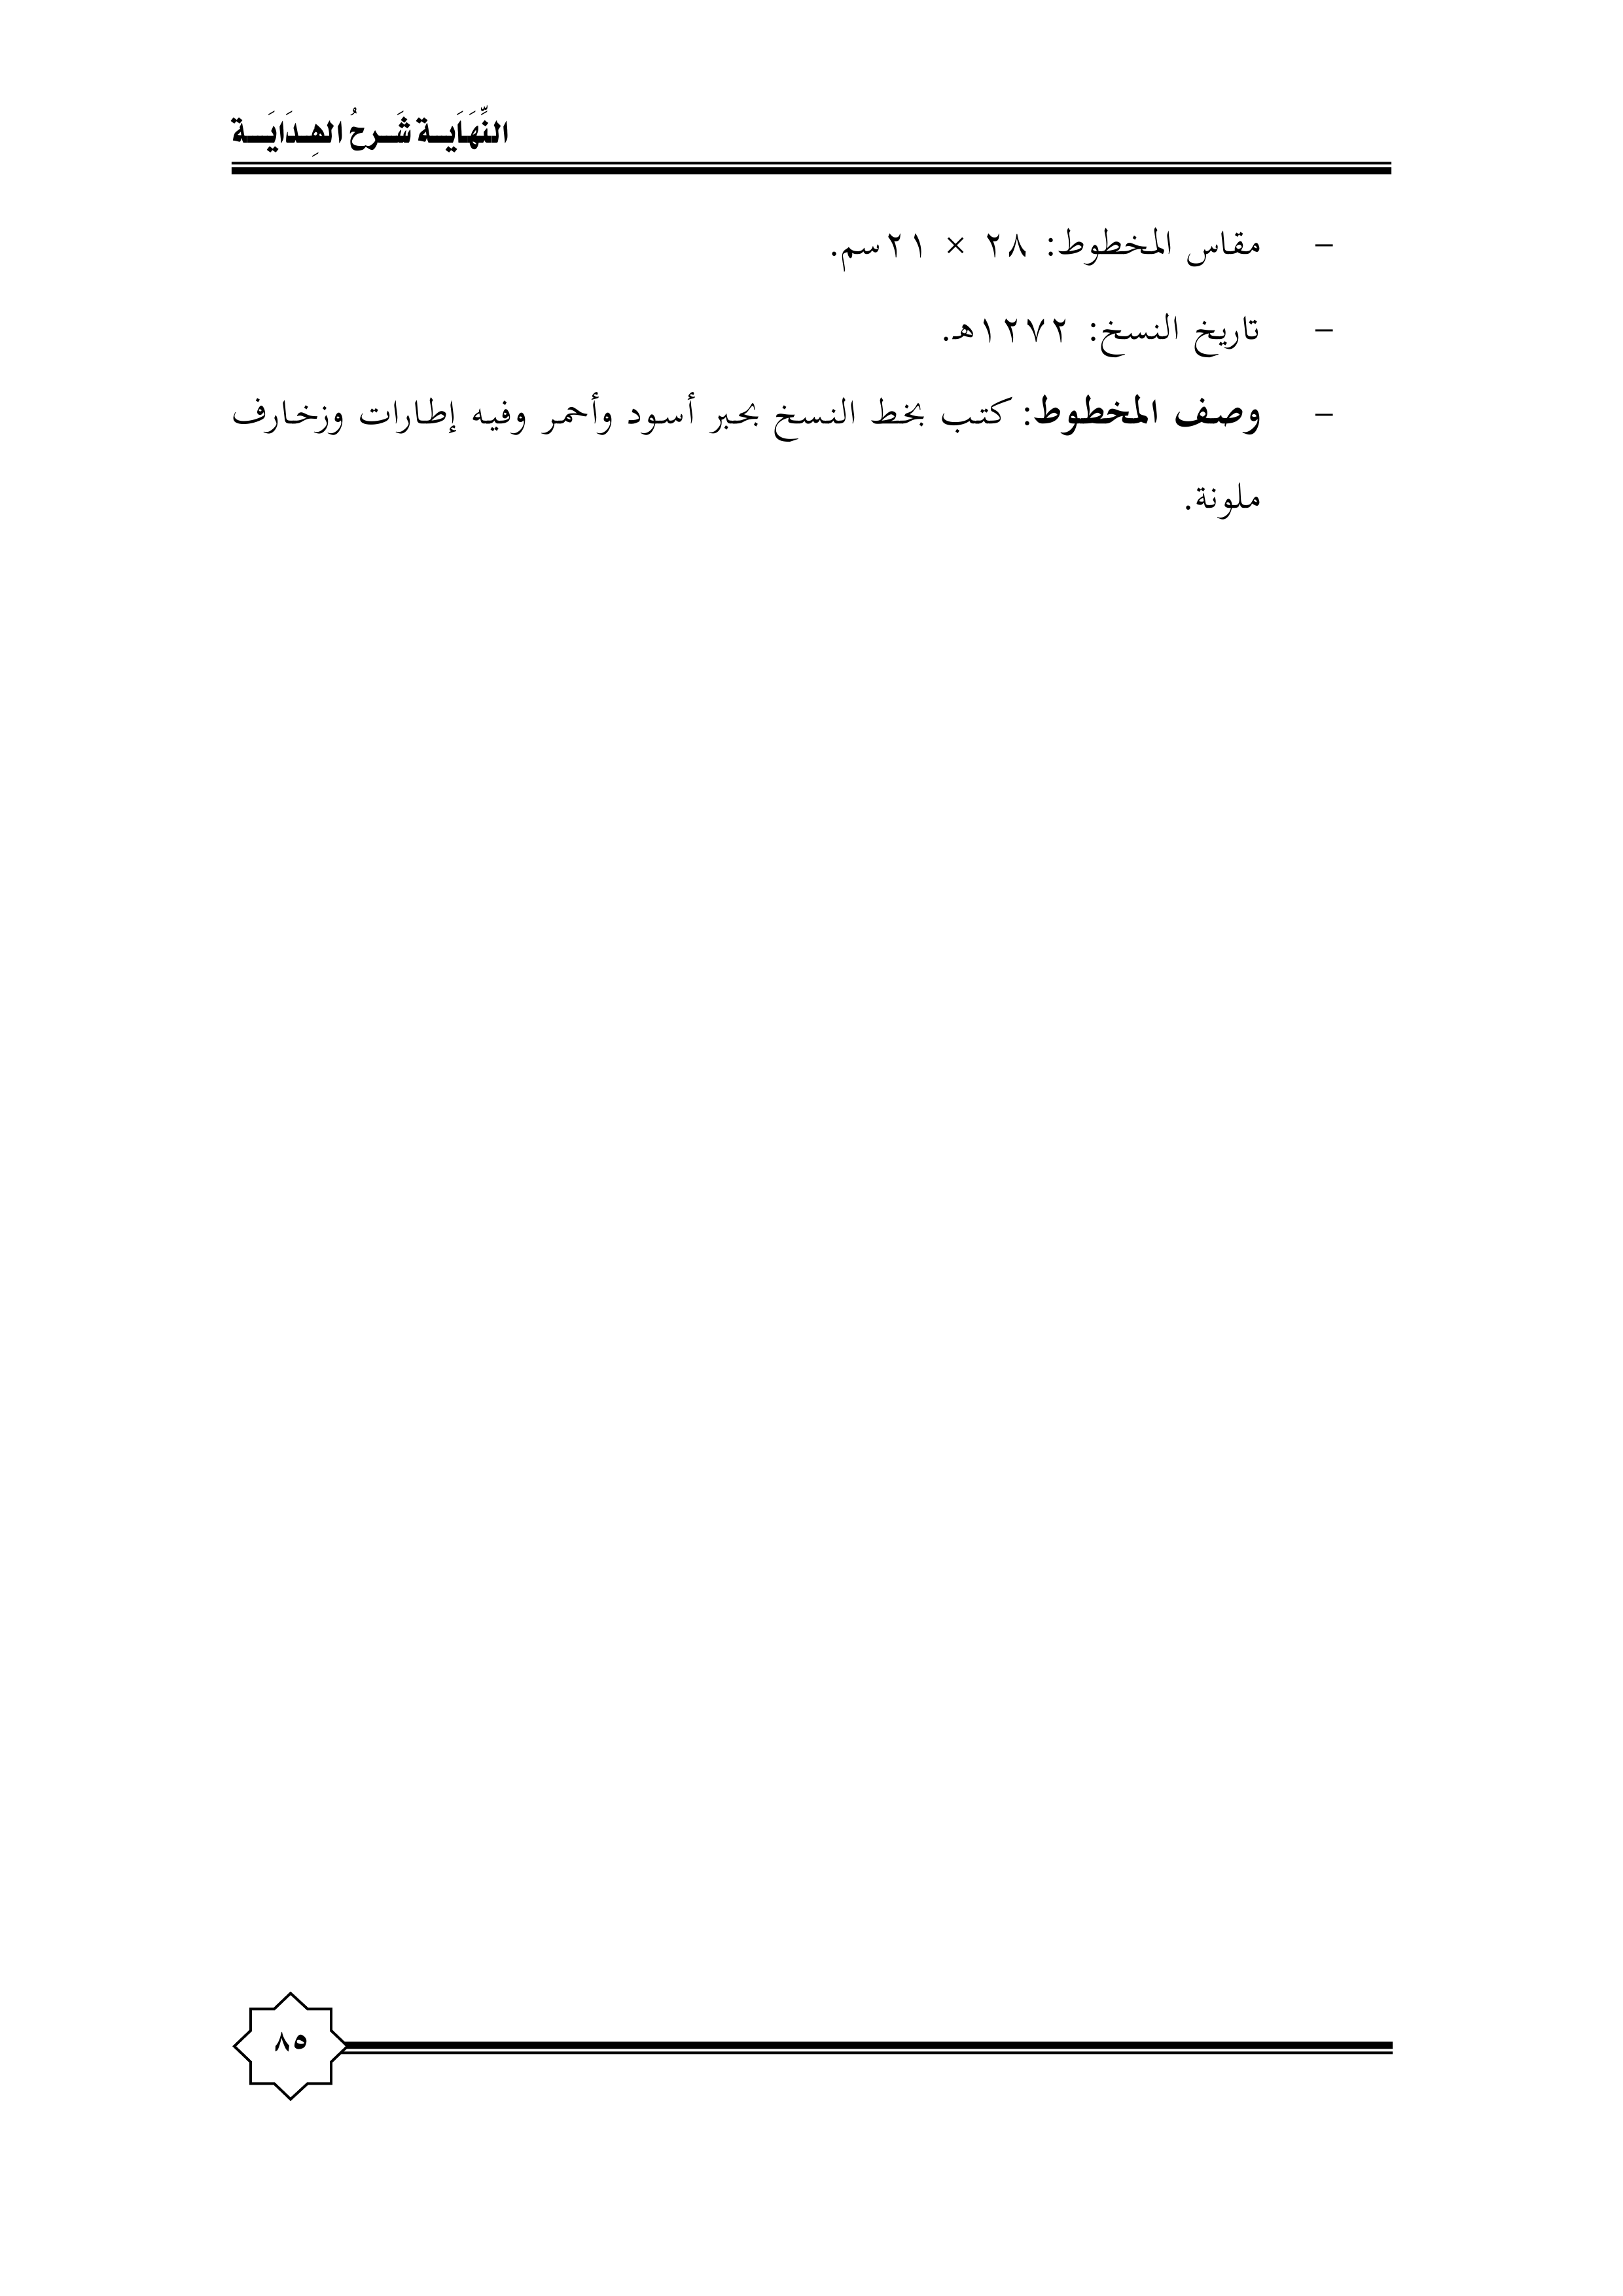 النِّهَايَة شَرحُ الهِدَايَة
– مقاس المخطوط: ٢٨ × ٢١سم.
– تاريخ النسخ: ١٢٧٢هـ.
– وصف المخطوط: كتب بخط النسخ بحبر أسود وأحمر وفيه إطارات وزخارف
ملونة.
٨٥